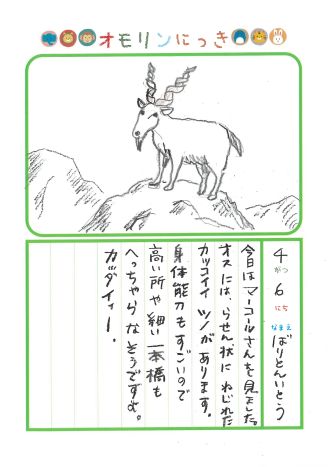 オモリンにっき
4がつ6にち なまえ ばりとんいとう
今日はマーコールさんを見ました。
オスには、らせん状にねじれた
カッコイイツノがあります。
身体能力もすごいので
高い所や細い一本橋も
へっちゃらなそうですよ。
カッケイィー。